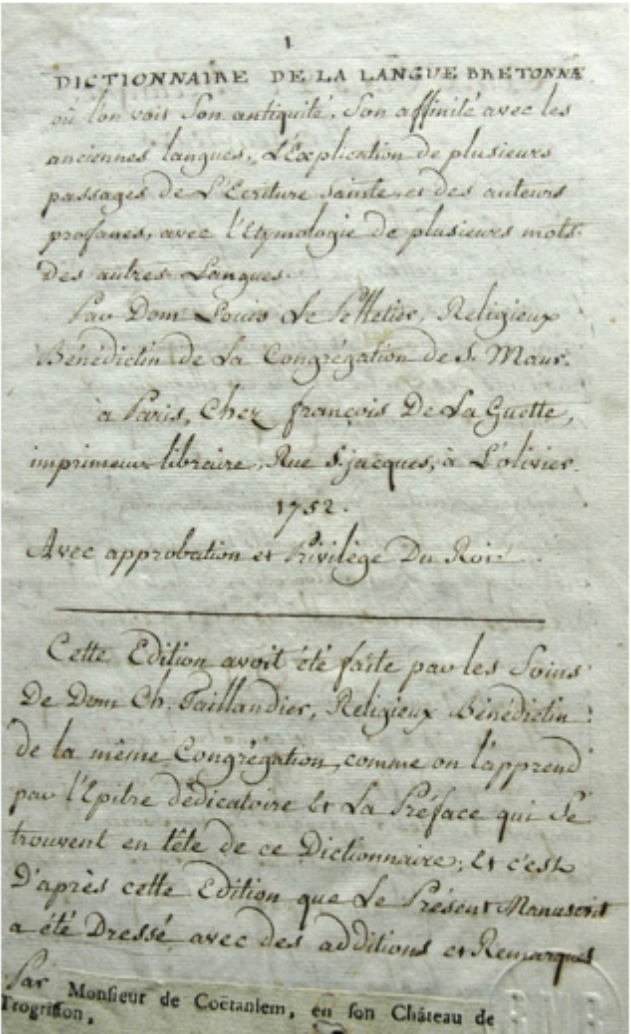 1
DICTIONNAIRE DE LA LANGUE BRETONNE
où l'on voit Son antiquité, Son affinité avec les
anciennes langues, L'Explication de plusieurs
passages de L'Ecriture sainte, et des auteurs
profanes, avec l'Etymologie de plusieurs mots
Des autres Langues
Par Dom Louis Le Pelletier, Religieux
Bénédictin de La Congrégation de S. Maur.
à Paris, Chez françois De La Guette,
imprimeur libraire, Rue S. jacques, à L'olivier.
1752.
Avec approbation et Privilège Du Roi
Cette Edition avoit été faite par les Soins
De Dom Ch. Taillandier, Religieux Bénédictin
de la même Congrégation, comme on l'apprend
par l'Epitre dédicatoire Et La Préface qui Se
trouvent en tête de ce Dictionnaire; Et c'est
D'après cette Edition que Le Présent Manuscrit
a été Dressé avec des additions et Remarques
Par Monsieur de Coëtanlem, en son Château de
Trogriffon,
BMB